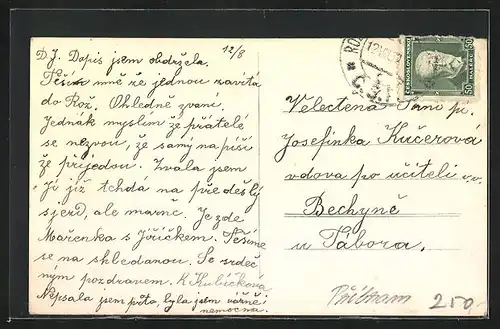 12/8
D J. Dopis jsem obdržela.
Těším mně že jednou zavítá
do Rož. Ohledně zvaní.
Jednák myslím že přátelé
se nezvou, že samy napíší
že přijedou. Zvala jsem
Jí již tehdá na předešlý
sjezd, ale marně. Je zde
Mařenka s Jiříčkem. Těšíme
se na shledanou. Se srdeč
ným pozdravem. K Kubíčková
Nepsala jsem proto, byla jsem vážně
nemocna.
ČESKOSLOVENSKO
50 HALÉŘŮ 50
Velectěná Paní pí.
Josefinka Kučerová
vdova po učiteli v.v.
Bechyně
u Tábora.
Příbram 250,-